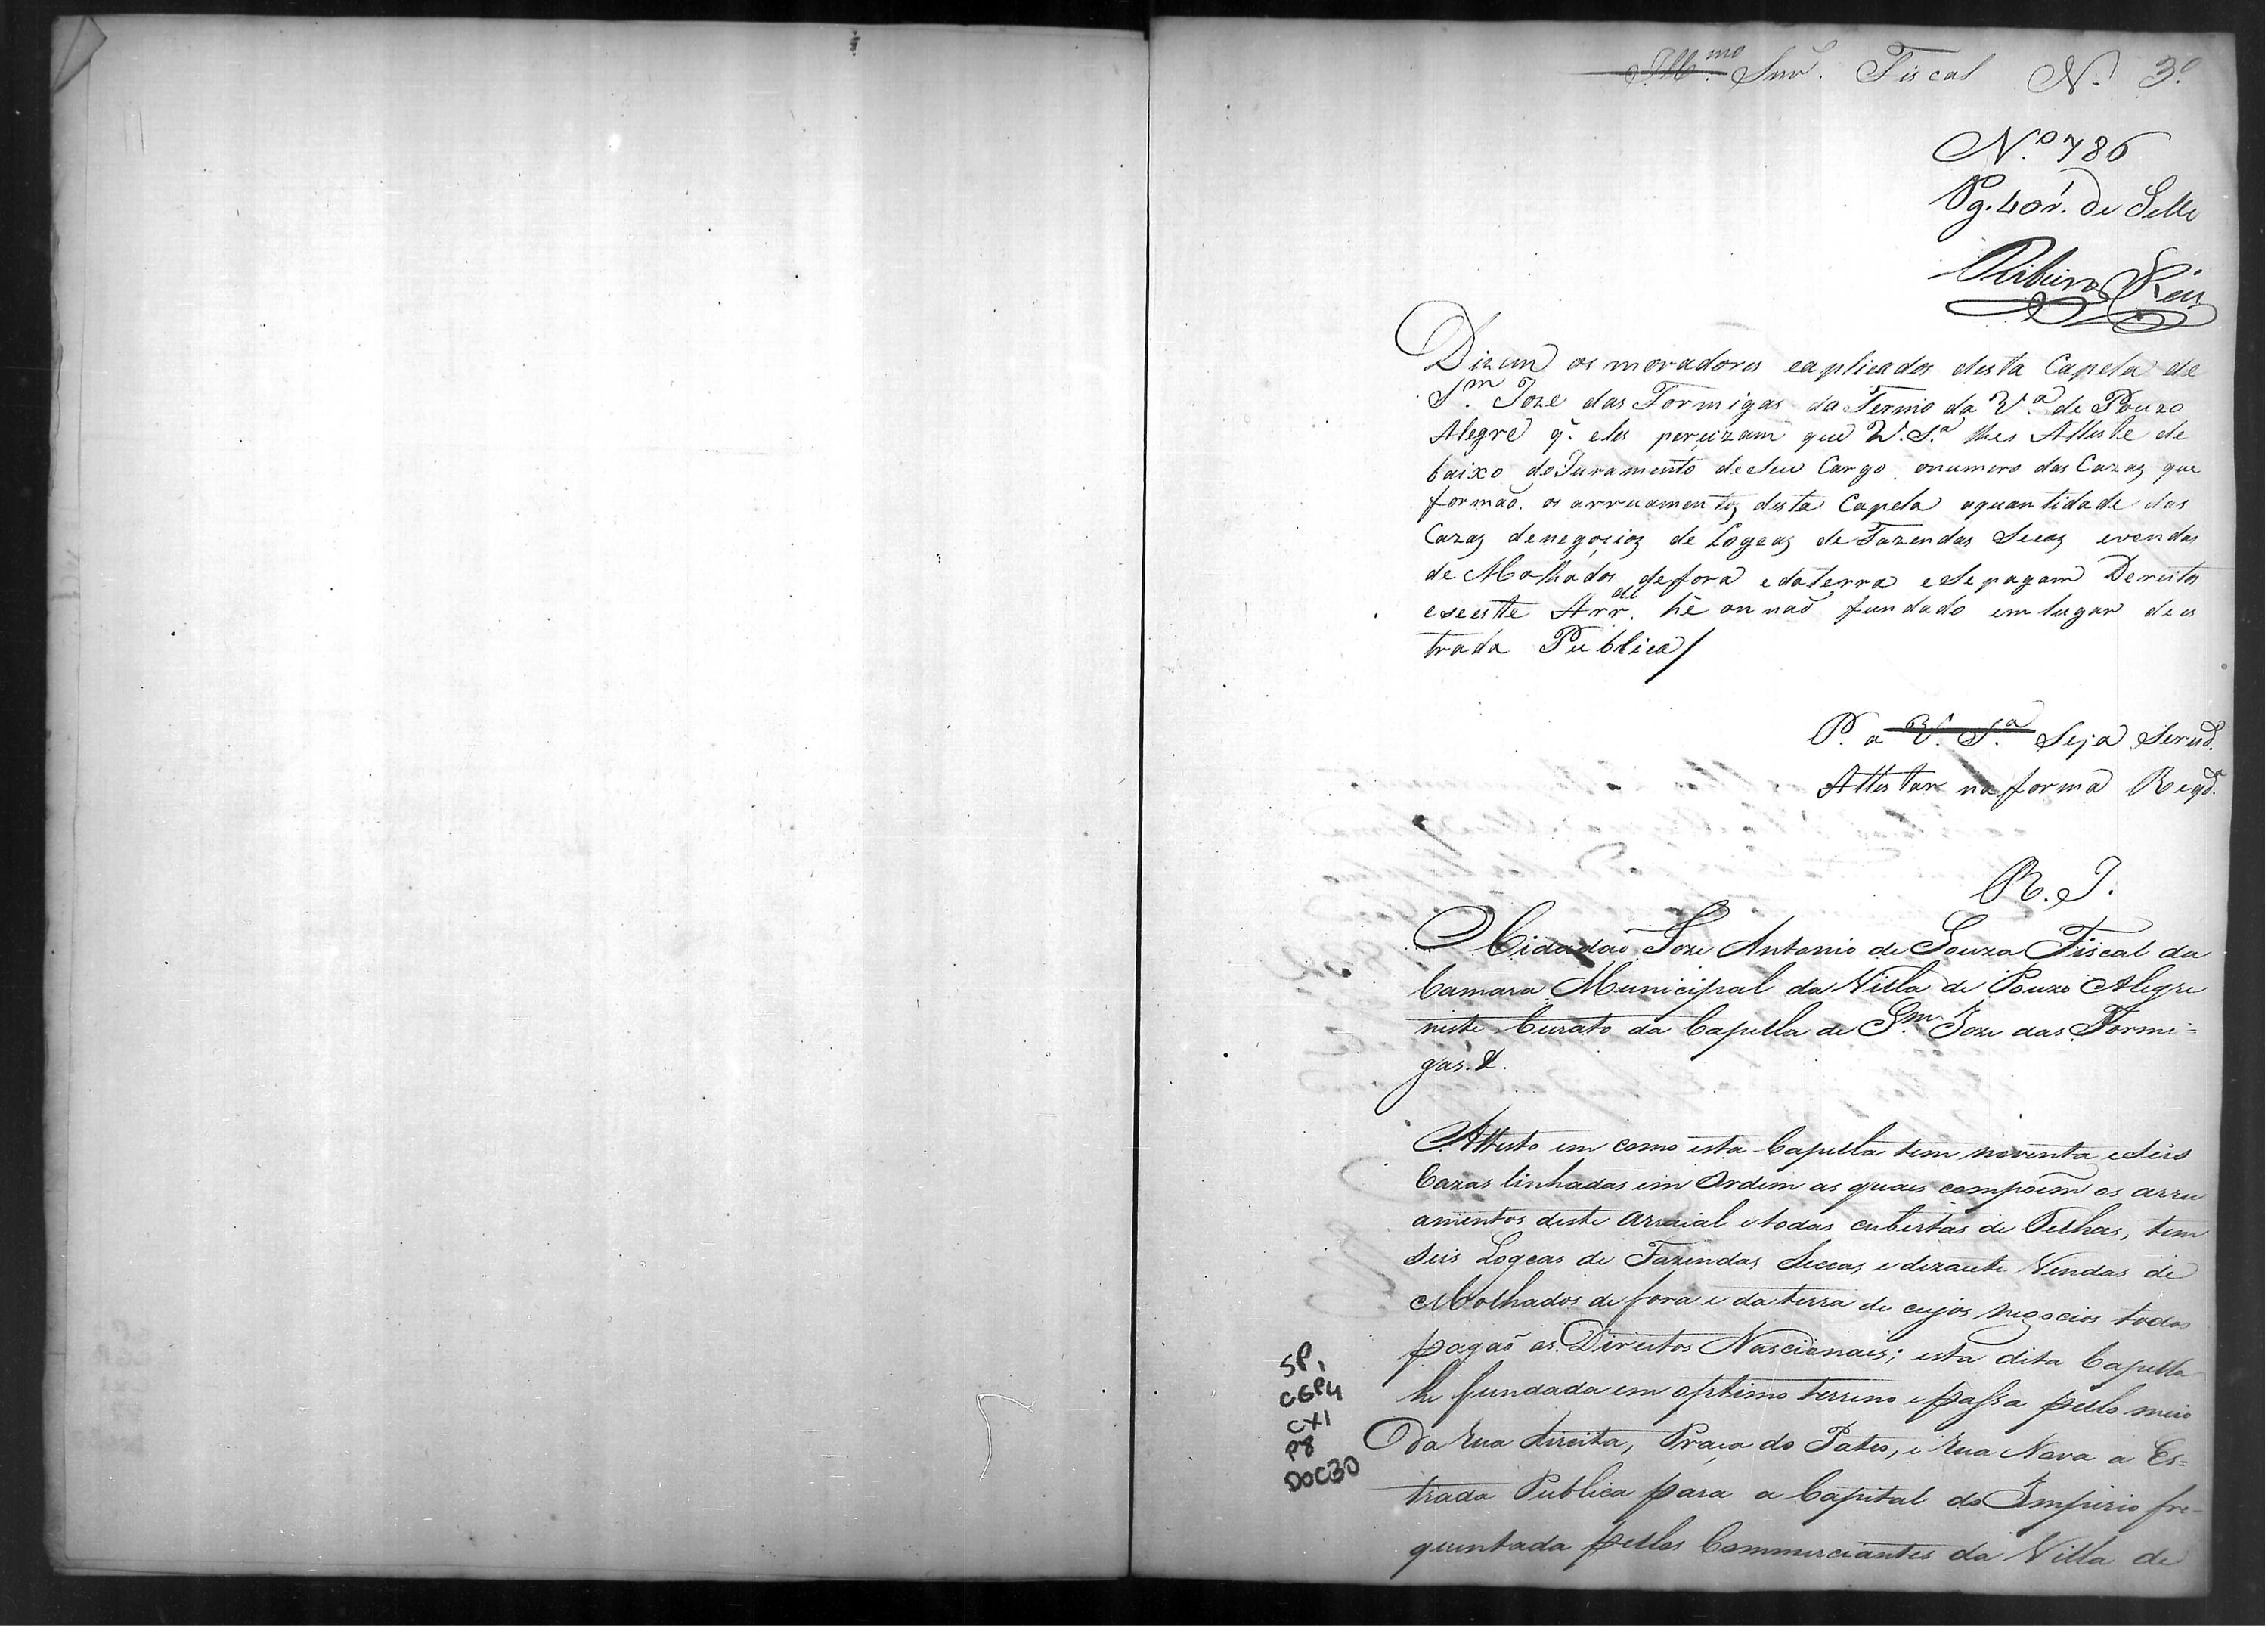 Ill.mo Snr. Fiscal N. 3.º
N.º 786
Pg. 40 r. de Sello
Ribeiro Reis
Dizem os moradores eaplicados desta Capela de
S.m Joze das Formigas do Termo da V.a de Pouzo
Alegre q. eles percizam que V. S.a lhes Atteste de
baixo do Juramento de Seu Cargo onumero das Cazas que
formaõ os arruamentos desta Capela aquantidade das
Cazas denegocios de Logeas de Fazendas Secas evendas
de Molhados defora edaterra eSepagam Dereitos
eseeste Arr.al hé ou naõ fundado em lugar de es
trada Publica/
P. a V. S.a Seja Servd.
Attestar na forma Reqd.a
R. J.
O Cidadaõ Joze Antonio de Souza Fiscal da
Camara Municipal da Villa de Pouzo Alegre
neste Curato da Capella de S.m Joze das Formi=
gas. &.
Attesto em como esta Capella tem noventa eSeis
Cazas linhadas em Ordem as quais compoem os arru
amentos deste arraial etodas cubertas de Telhas, tem
Seis Logeas de Fazendas Seccas e dezacete Vendas de
Molhados de fora e da terra de cujos negocios todos
pagaõ os Direitos Nascionais; esta dita Capella
he fundada em optimo terreno epassa pello meio
da Rua direita, Praça do Pateo, e Rua Nova a Es=
trada Publica para a Capital do Imperio fre-
quentada pellos Commerciantes da Villa de
SP,
CGP4
CX1
P8
DOC30